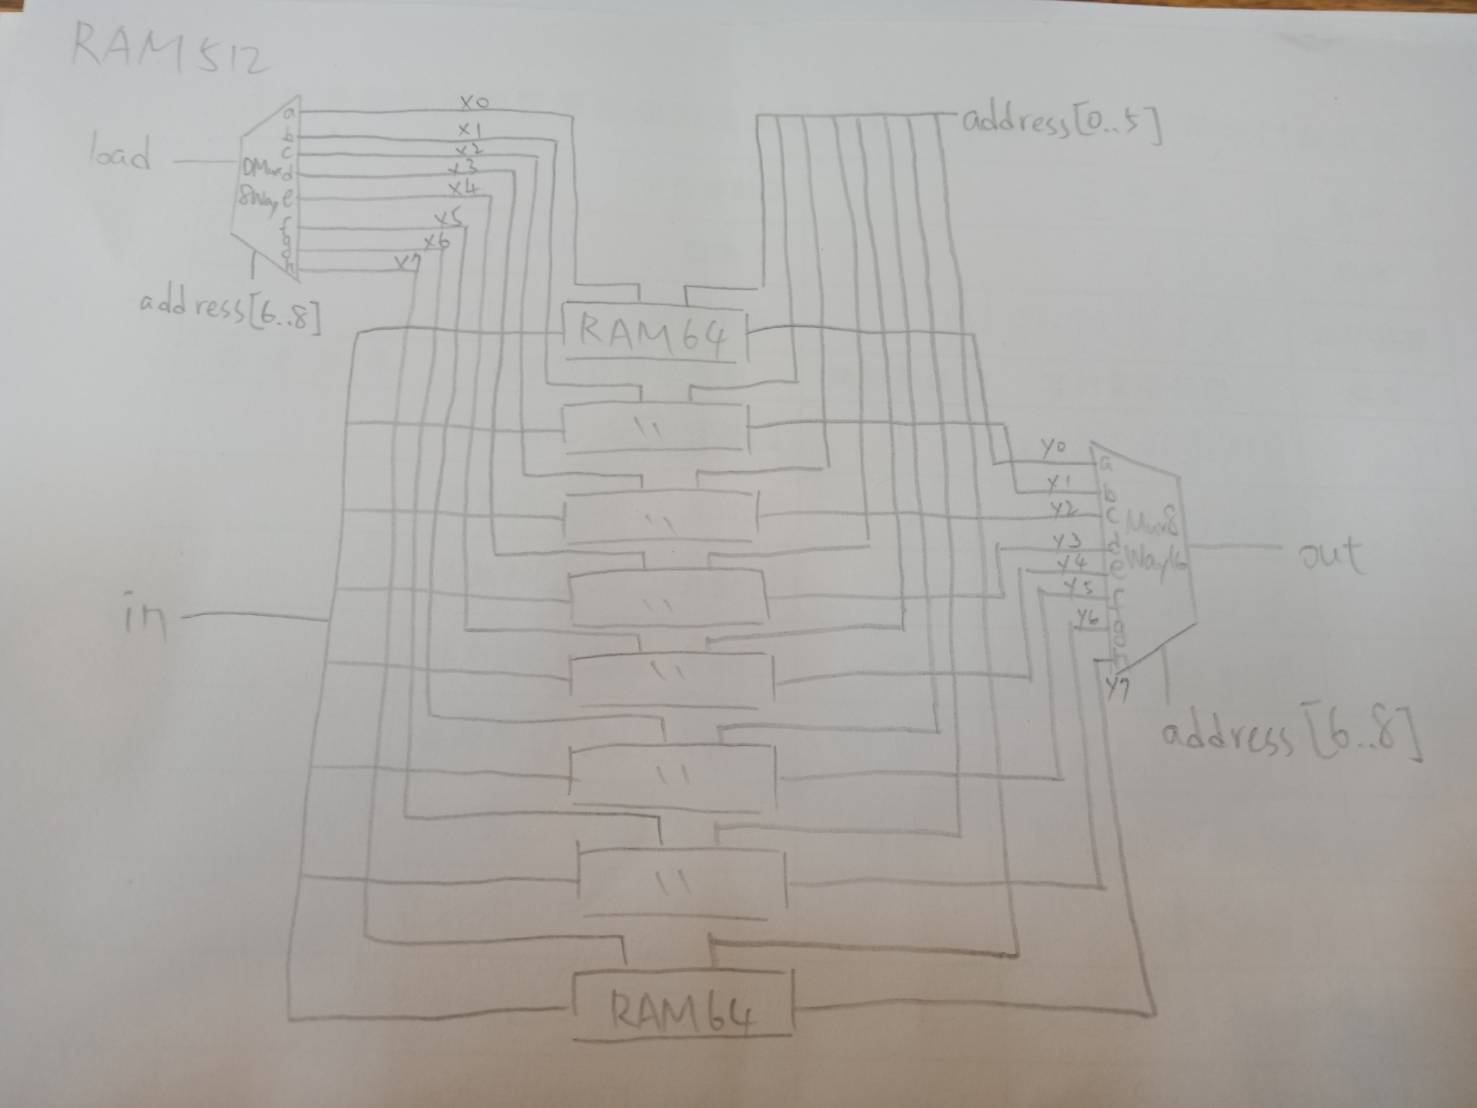 RAM512
load
DMux
8Way
a
b
c
d
e
f
g
h
x0
x1
x2
x3
x4
x5
x6
x7
address[6..8]
address[0..5]
RAM64
\\
\\
\\
\\
\\
\\
RAM64
in
y0
y1
y2
y3
y4
y5
y6
y7
a
b
c
d
e
f
g
h
Mux8
Way16
out
address[6..8]